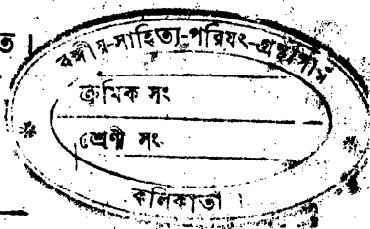 ত।
বঙ্গীয়-সাহিত্য-পরিষৎ-গ্রন্থাগার
ক্রমিক সং
শ্রেণী সং
কলিকাতা।